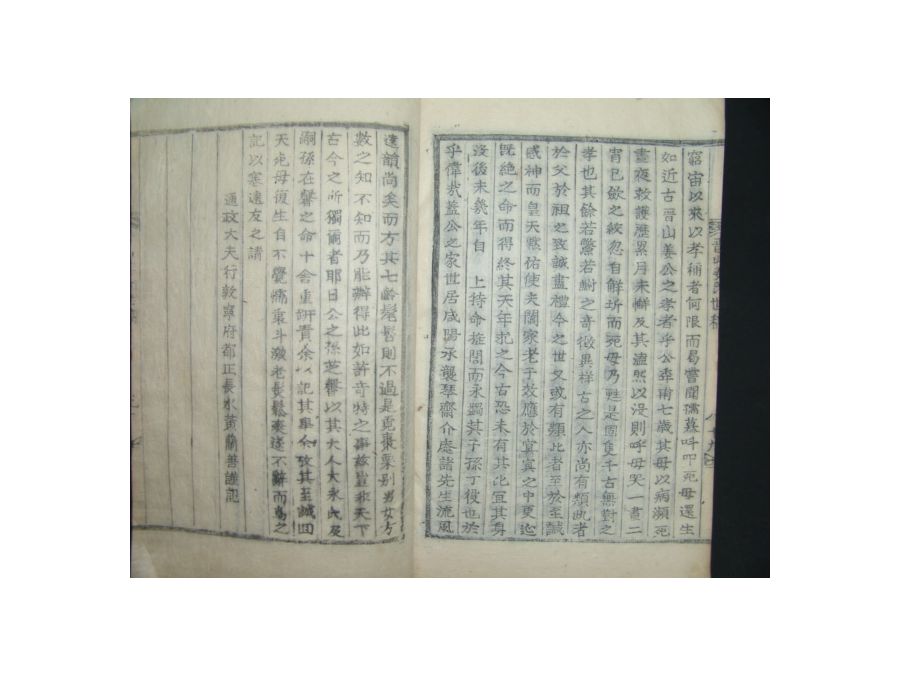 窮宙以來以孝稱者何限而曷嘗聞孺慕呼叩死母還生
如近古晋山姜公之孝者乎公垂甫七歲其母以病瀕死
晝夜救護歷累月未解及其溘然以沒則呼母哭一晝二
宵已斂之絞忽自解坼而死母乃甦是固隻千古無對之
孝也其餘若鱉若樹之奇徵異祥古之人亦尚有類此者
於父於祖之致誠盡禮今之世又或有類此者至於至誠
感神而皇天黙佑使夫閻家老子效應於冥冥之中更迨
旣絶之命而得終其天年求之今古恐未有其比宜其身
沒後未幾年自 上持命旌閭而永蠲其子孫丁役也於
乎偉哉蓋公之家世居咸陽承襲琴齋介庵諸先生流風
遺韻尚矣而方其七齡髦髫則不過是覓棗栗别男女方
數之知不知而乃能辦得此如許奇特之事玆豈非天下
古今之所獨爾者耶日公之孫芝馨以其大人大永氏及
嗣孫在馨之命十舍重趼責余以記其畢余攷其至誠回
天死母復生自不覺痛棗斗激老長鬆爽遂不辭而爲之
記以塞遠友之請
通政大夫行敦寧府都正長水黃蘭善謹記